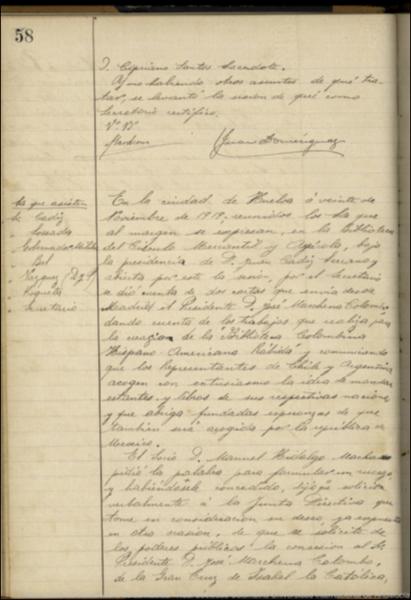 58
D. Cipriano Santos Sacerdote.
Y no habiendo otros asuntos de qué tra-
tar, se levantó la sesión de que como
Secretario certifico.
Vº Bº
Juan Domínguez
Sres que asisten
Cádiz
Losada
Gobernador Militar
Bel
Vázquez
Roqueta
Secretario
En la ciudad de Huelva á veinte de
Noviembre de 1919, reunidos los que
al margen se expresan, en la Biblioteca
del Círculo Mercantil y Agrícola, bajo
la presidencia de D. Juan Cádiz Serrano y
abierta por este la sesión, por el Secretario
se dió cuenta de dos cartas que envía desde
Madrid el Presidente D. José Marchena Colombo,
dando cuenta de los trabajos que realiza para
la creación de la Biblioteca Colombina
Hispano-Americana Rábida y comunicando
que los Representantes de Chile y Argentina
acogen con entusiasmo la idea de mandar
estantes y libros de sus respectivas naciones
y que abriga fundadas esperanzas de que
también será acogida por la república de
Mexico.
El Socio D. Manuel Hidalgo Machado
pidió la palabra para formular un ruego
y habiéndosele concedido, dijo: solicita
verbalmente á la Junta Directiva que
tome en consideración su deseo, ya expuesto
en otra ocasión, de que se solicite de
los poderes públicos la concesión al Sr.
Presidente D. José Marchena Colombo,
de la Gran Cruz de Isabel la Católica,